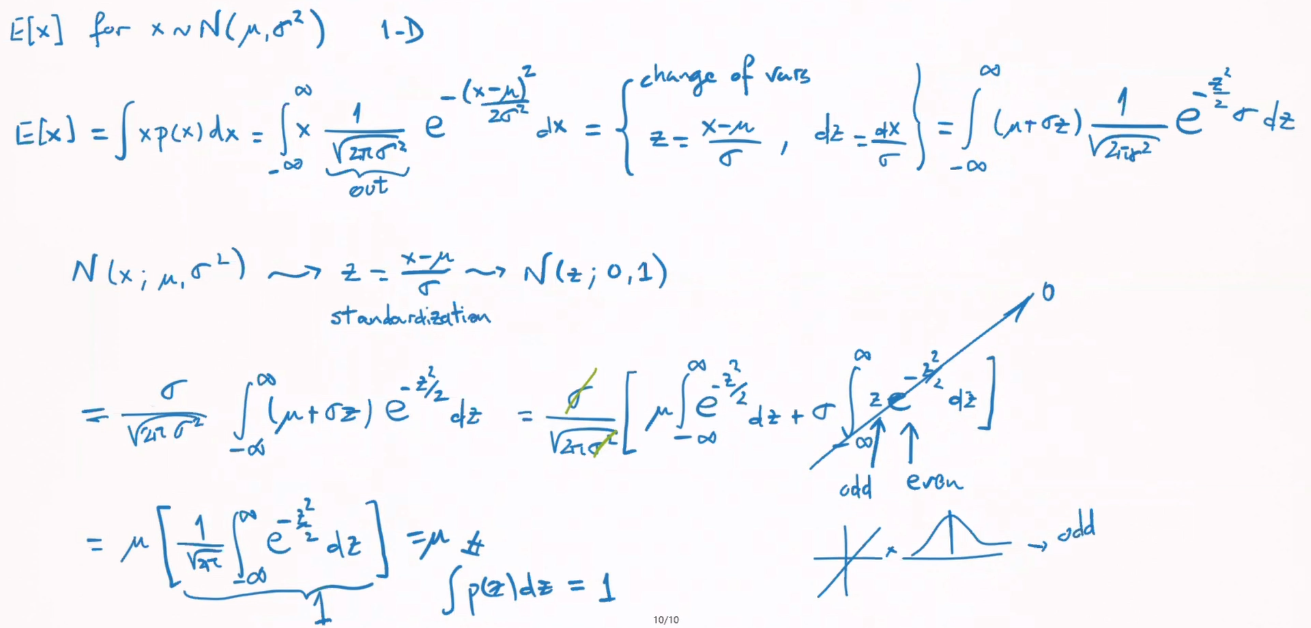 E[x] for x ~ N(μ, σ²) 1-D
E[x] = ∫ x p(x) dx = ∫_{-∞}^{∞} x \frac{1}{\sqrt{2πσ²}} e^{-\frac{(x-μ)²}{2σ²}} dx = { change of vars z = \frac{x-μ}{σ}, dz = \frac{dx}{σ} } = ∫_{-∞}^{∞} (μ+σz) \frac{1}{\sqrt{2πσ²}} e^{-\frac{z²}{2}} σ dz
out
N(x; μ, σ²) ⇝ z = \frac{x-μ}{σ} ⇝ N(z; 0, 1)
standardization
0
= \frac{σ}{\sqrt{2πσ²}} ∫_{-∞}^{∞} (μ+σz) e^{-z²/2} dz = \frac{σ}{\sqrt{2πσ²}} [ μ ∫_{-∞}^{∞} e^{-z²/2} dz + σ ∫_{-∞}^{∞} z e^{-z²/2} dz ]
odd even
= μ [ \frac{1}{\sqrt{2π}} ∫_{-∞}^{∞} e^{-\frac{z²}{2}} dz ] = μ #
× → odd
1
∫ p(z) dz = 1
10/10